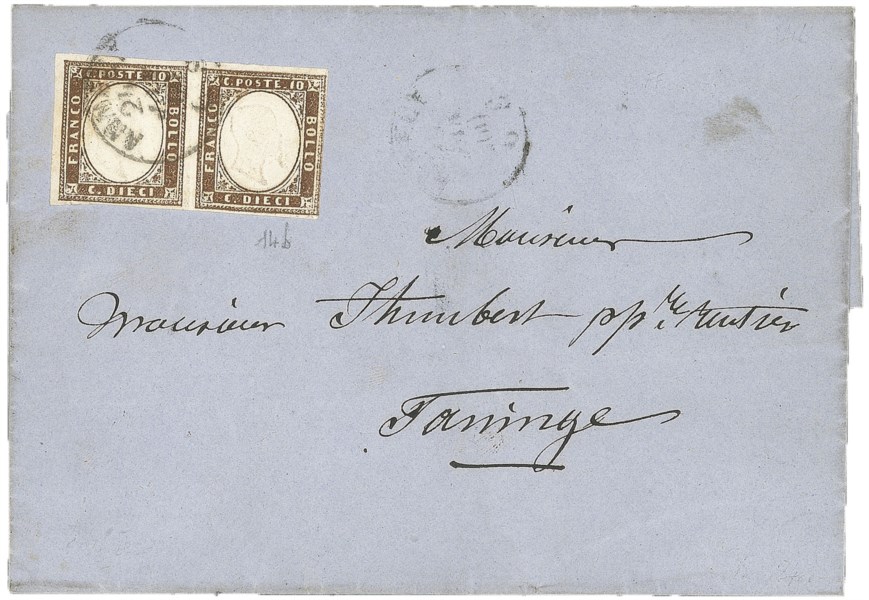 C. POSTE 10
FRANCO
BOLLO
C. DIECI
C. POSTE 10
FRANCO
BOLLO
C. DIECI
ANN
21
14b
Monsieur
Monsieur Humbert ppre Rentier
Taninge